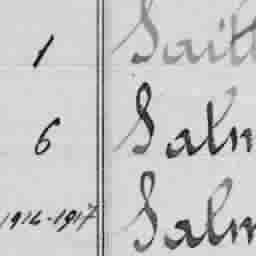 1 Saitt
6 Salm
1916-1917 Salm